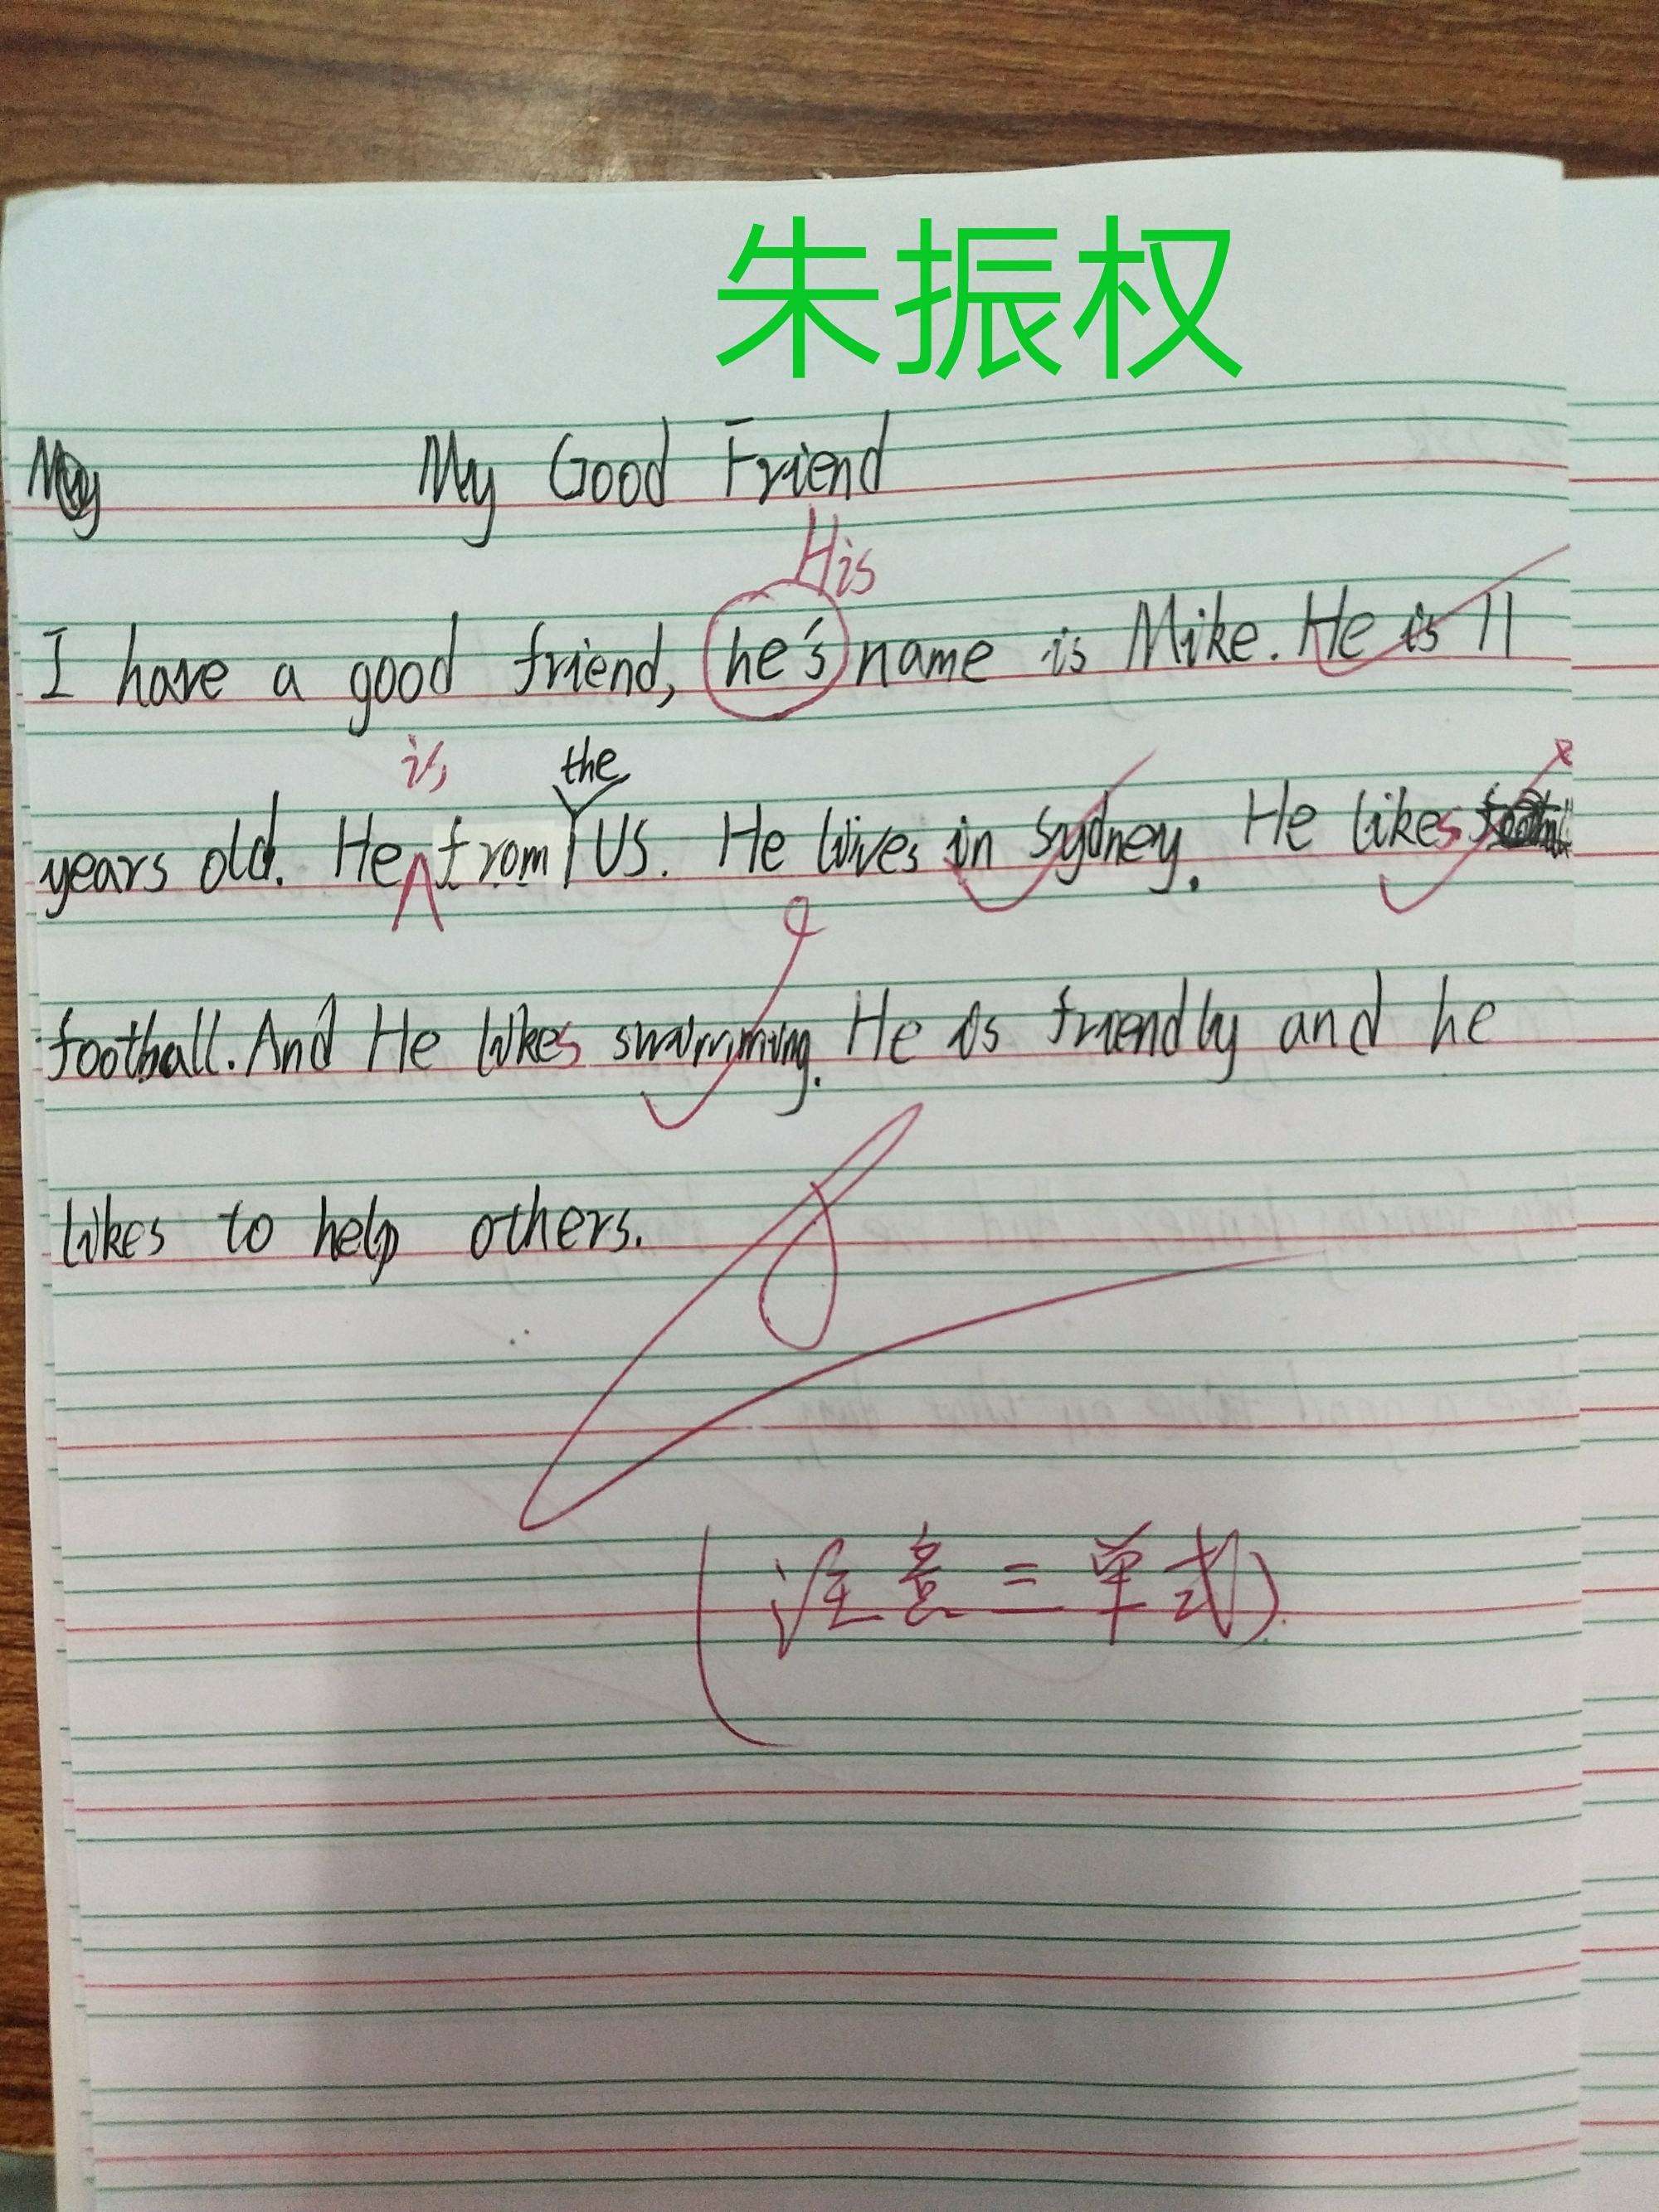 朱振权
My My Good Friend
His
I have a good friend, he's name is Mike. He is 11
is the
years old. He from US. He lives in Sydney. He likes
football. And He likes swimming. He is friendly and he
likes to help others.
(注意三单式)